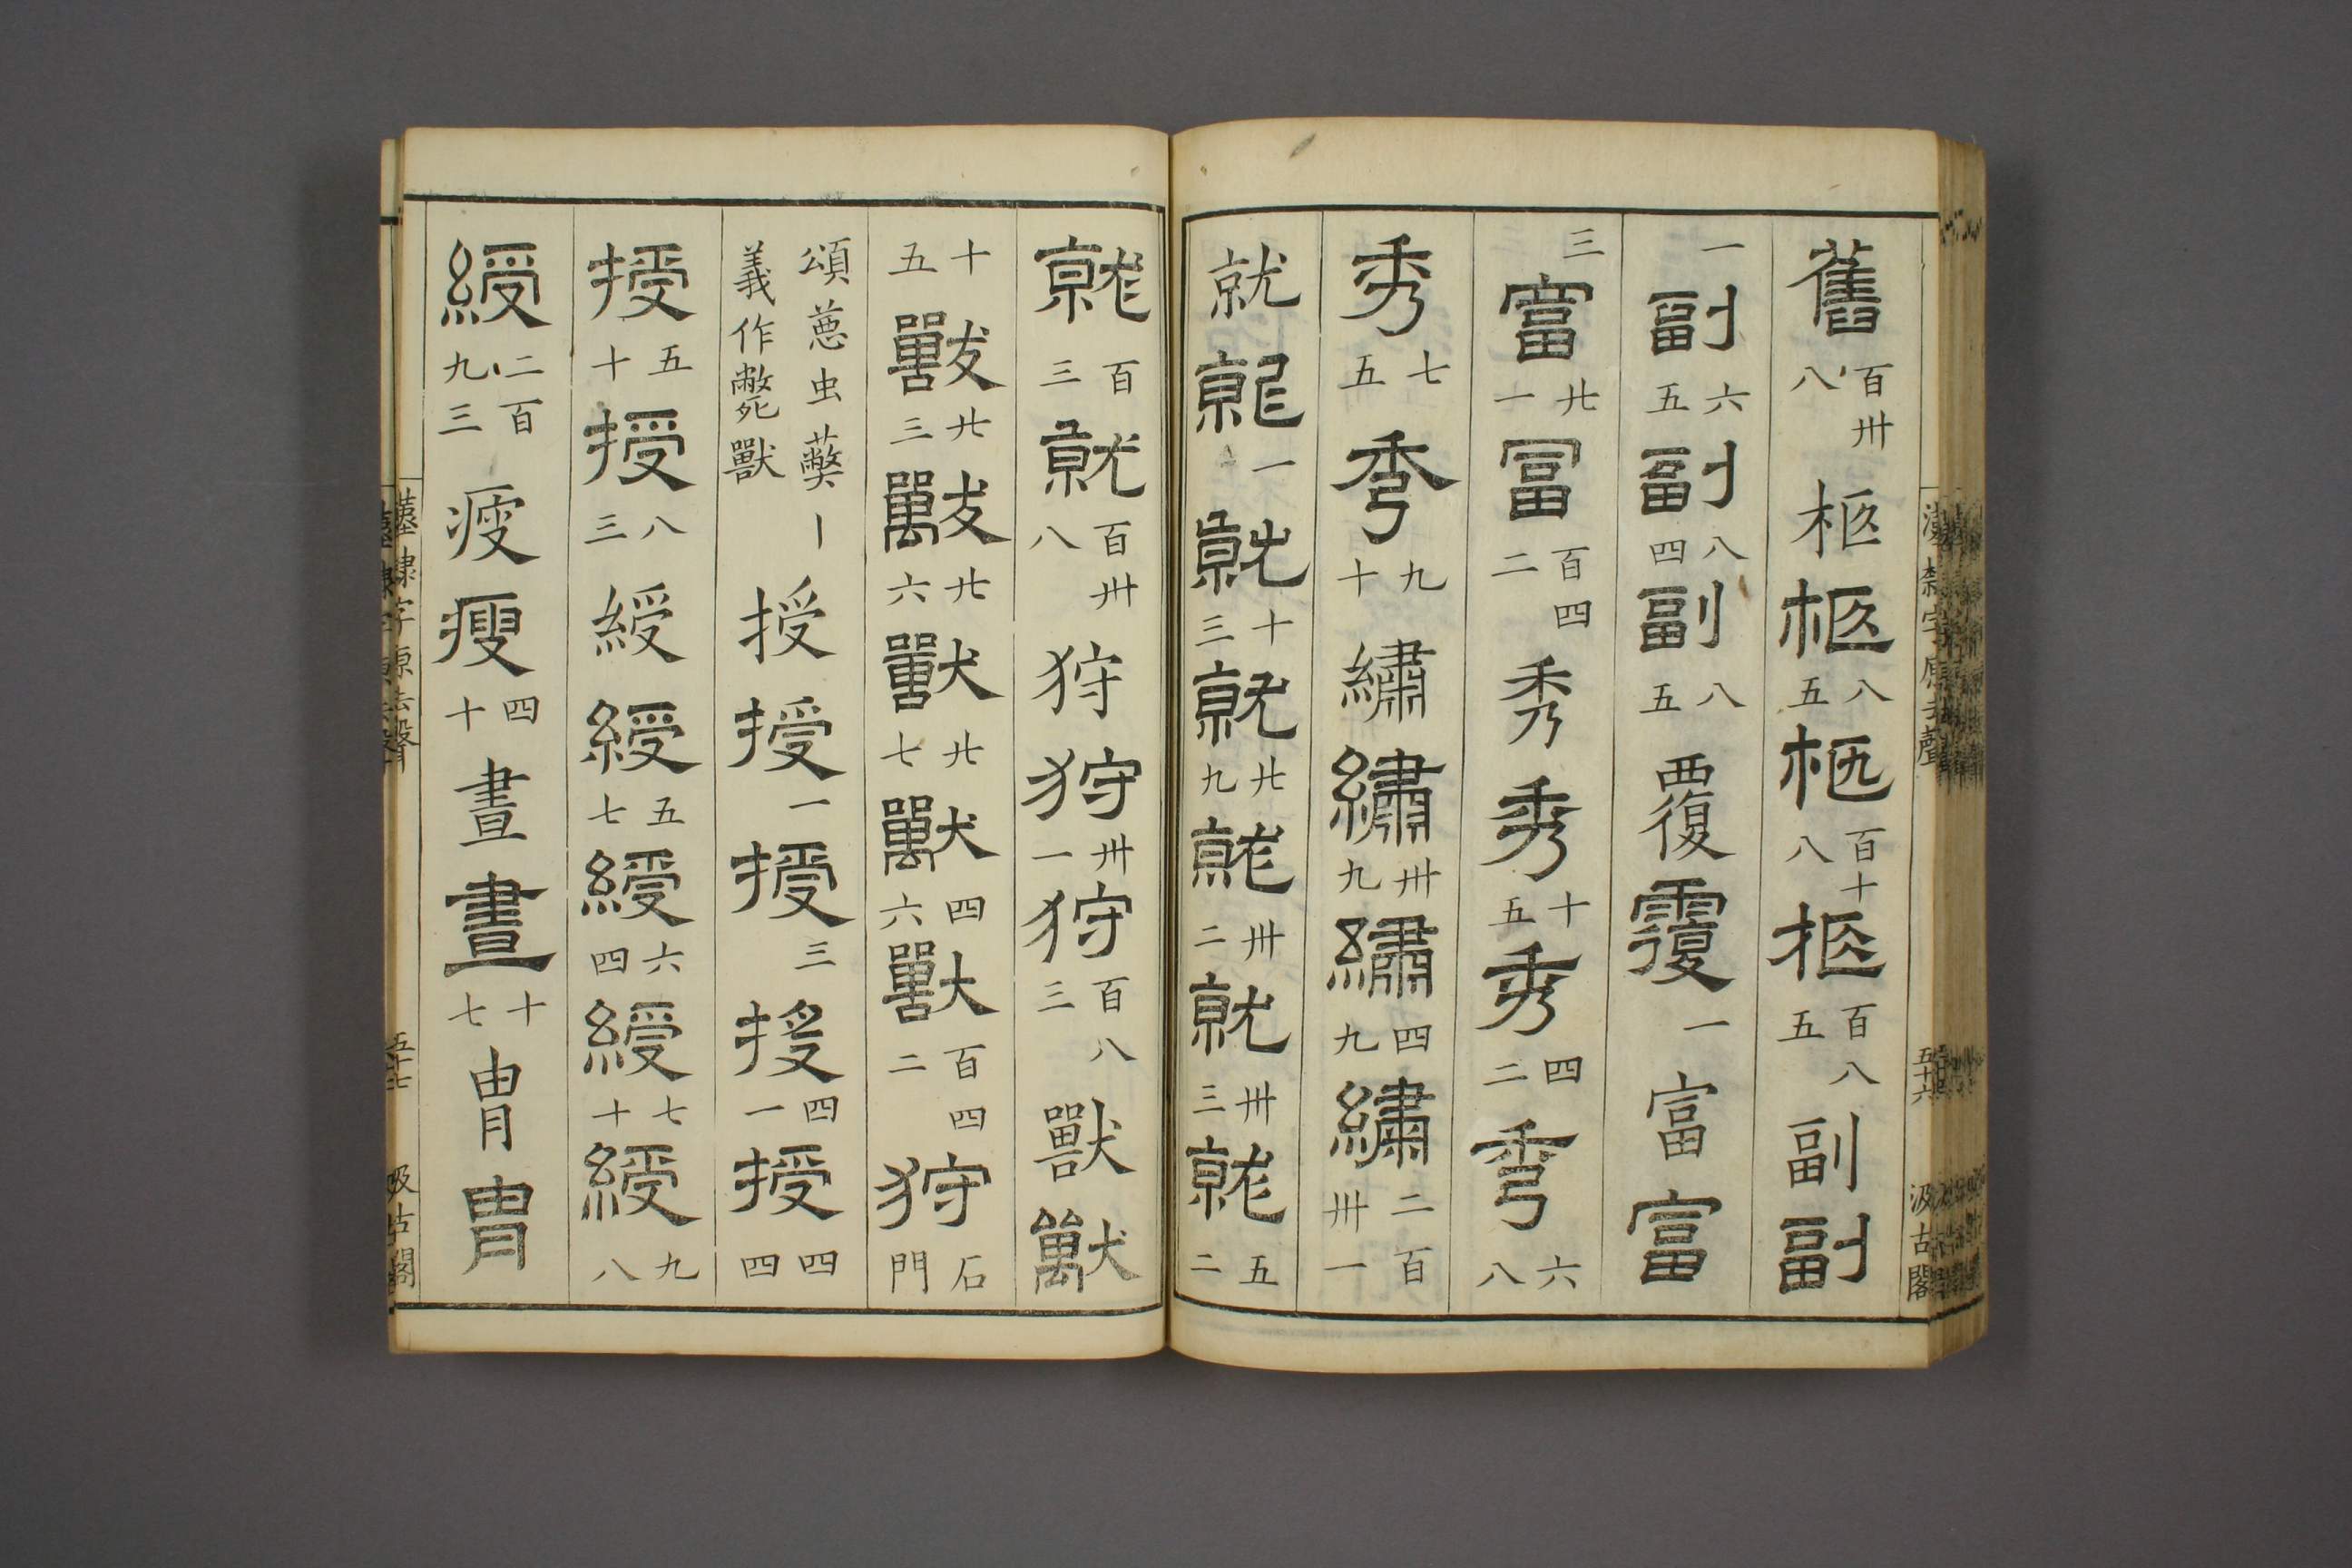 舊 百卅八 柩 柩 八五 柩 百十八 柩 百八五 副 副
一 副 六五 副 八四 副 八五 覆 覆 一 富 富
三 富 廿一 冨 百四二 秀 秀 十五 秀 四二 秀 六八
秀 七五 秀 九十 繡 繡 卅九 繡 四九 繡 二百卅一
就 就 一 就 十三 就 廿九 就 卅二 就 卅三 就 五二
就 百三 就 百卅八 狩 狩 卅一 狩 百八三 獸 獸
十五 獸 廿三 獸 廿六 獸 廿七 獸 四六 獸 百四二 狩 石門
頌蒽虫薎丨義作斃獸 授 授 一 授 三 授 四一 授 四四
授 五十 授 八三 綬 綬 五七 綬 六四 綬 七十 綬 九八
綬 二百九三 瘦 瘦 四十 晝 晝 十七 胄 胄
漢隸字原去聲 五十六 汲古閣
漢隸字原去聲 五十七 汲古閣